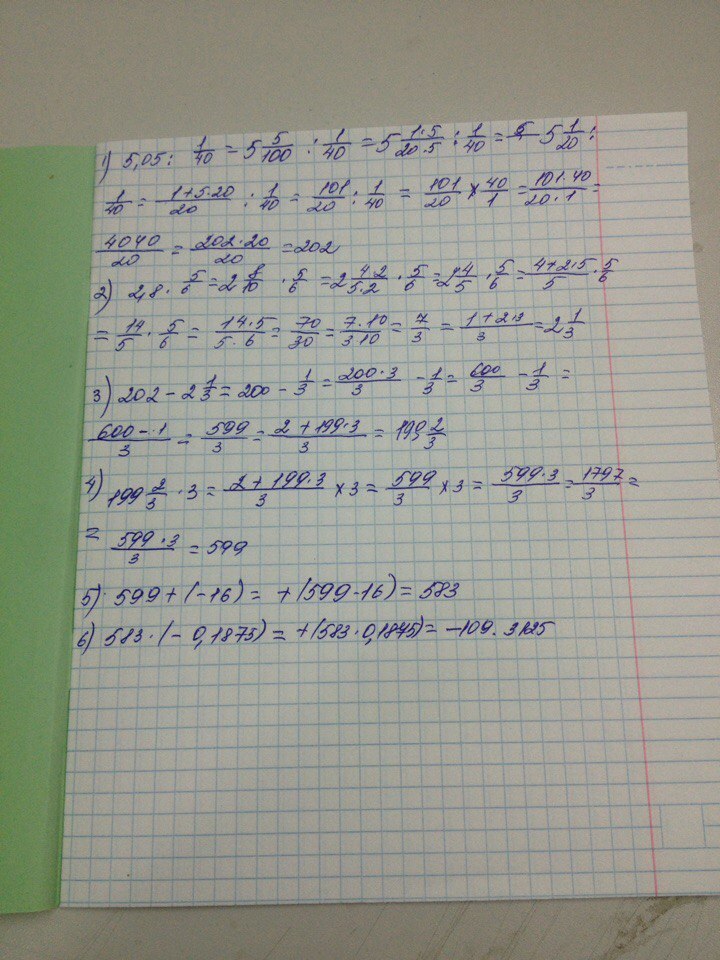 1) 5,05 : 1/40 = 5 5/100 : 1/40 = 5 1·5/20·5 : 1/40 = 5 1/20 :
1/40 = 1+5·20/20 : 1/40 = 101/20 : 1/40 = 101/20 × 40/1 = 101·40/20·1 =
4040/20 = 202·20/20 = 202
2) 2,8 · 5/6 = 2 8/10 · 5/6 = 2 4·2/5·2 · 5/6 = 2 4/5 · 5/6 = 4+2·5/5 · 5/6
= 14/5 · 5/6 = 14·5/5·6 = 70/30 = 7·10/3·10 = 7/3 = 1+2·3/3 = 2 1/3
3) 202 - 2 1/3 = 200 - 1/3 = 200·3/3 - 1/3 = 600/3 - 1/3 =
600-1/3 = 599/3 = 2+199·3/3 = 199 2/3
4) 199 2/3 · 3 = 2+199·3/3 × 3 = 599/3 × 3 = 599·3/3 = 1797/3 =
= 599·3/3 = 599
5) 599 + (-16) = +(599-16) = 583
6) 583 · (-0,1875) = +(583·0,1875) = -109.3125